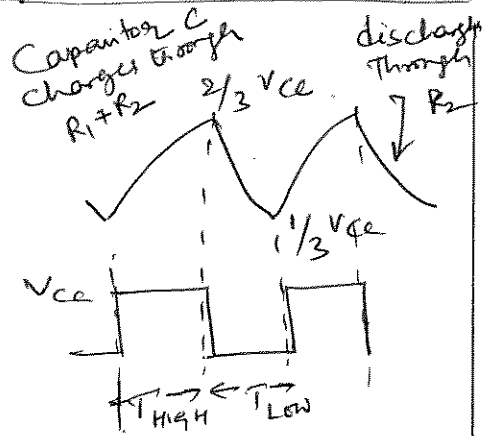 Capacitor C
charges through
R1+R2
discharge
Through
R2
2/3 Vcc
1/3 Vcc
Vcc
THIGH
TLOW